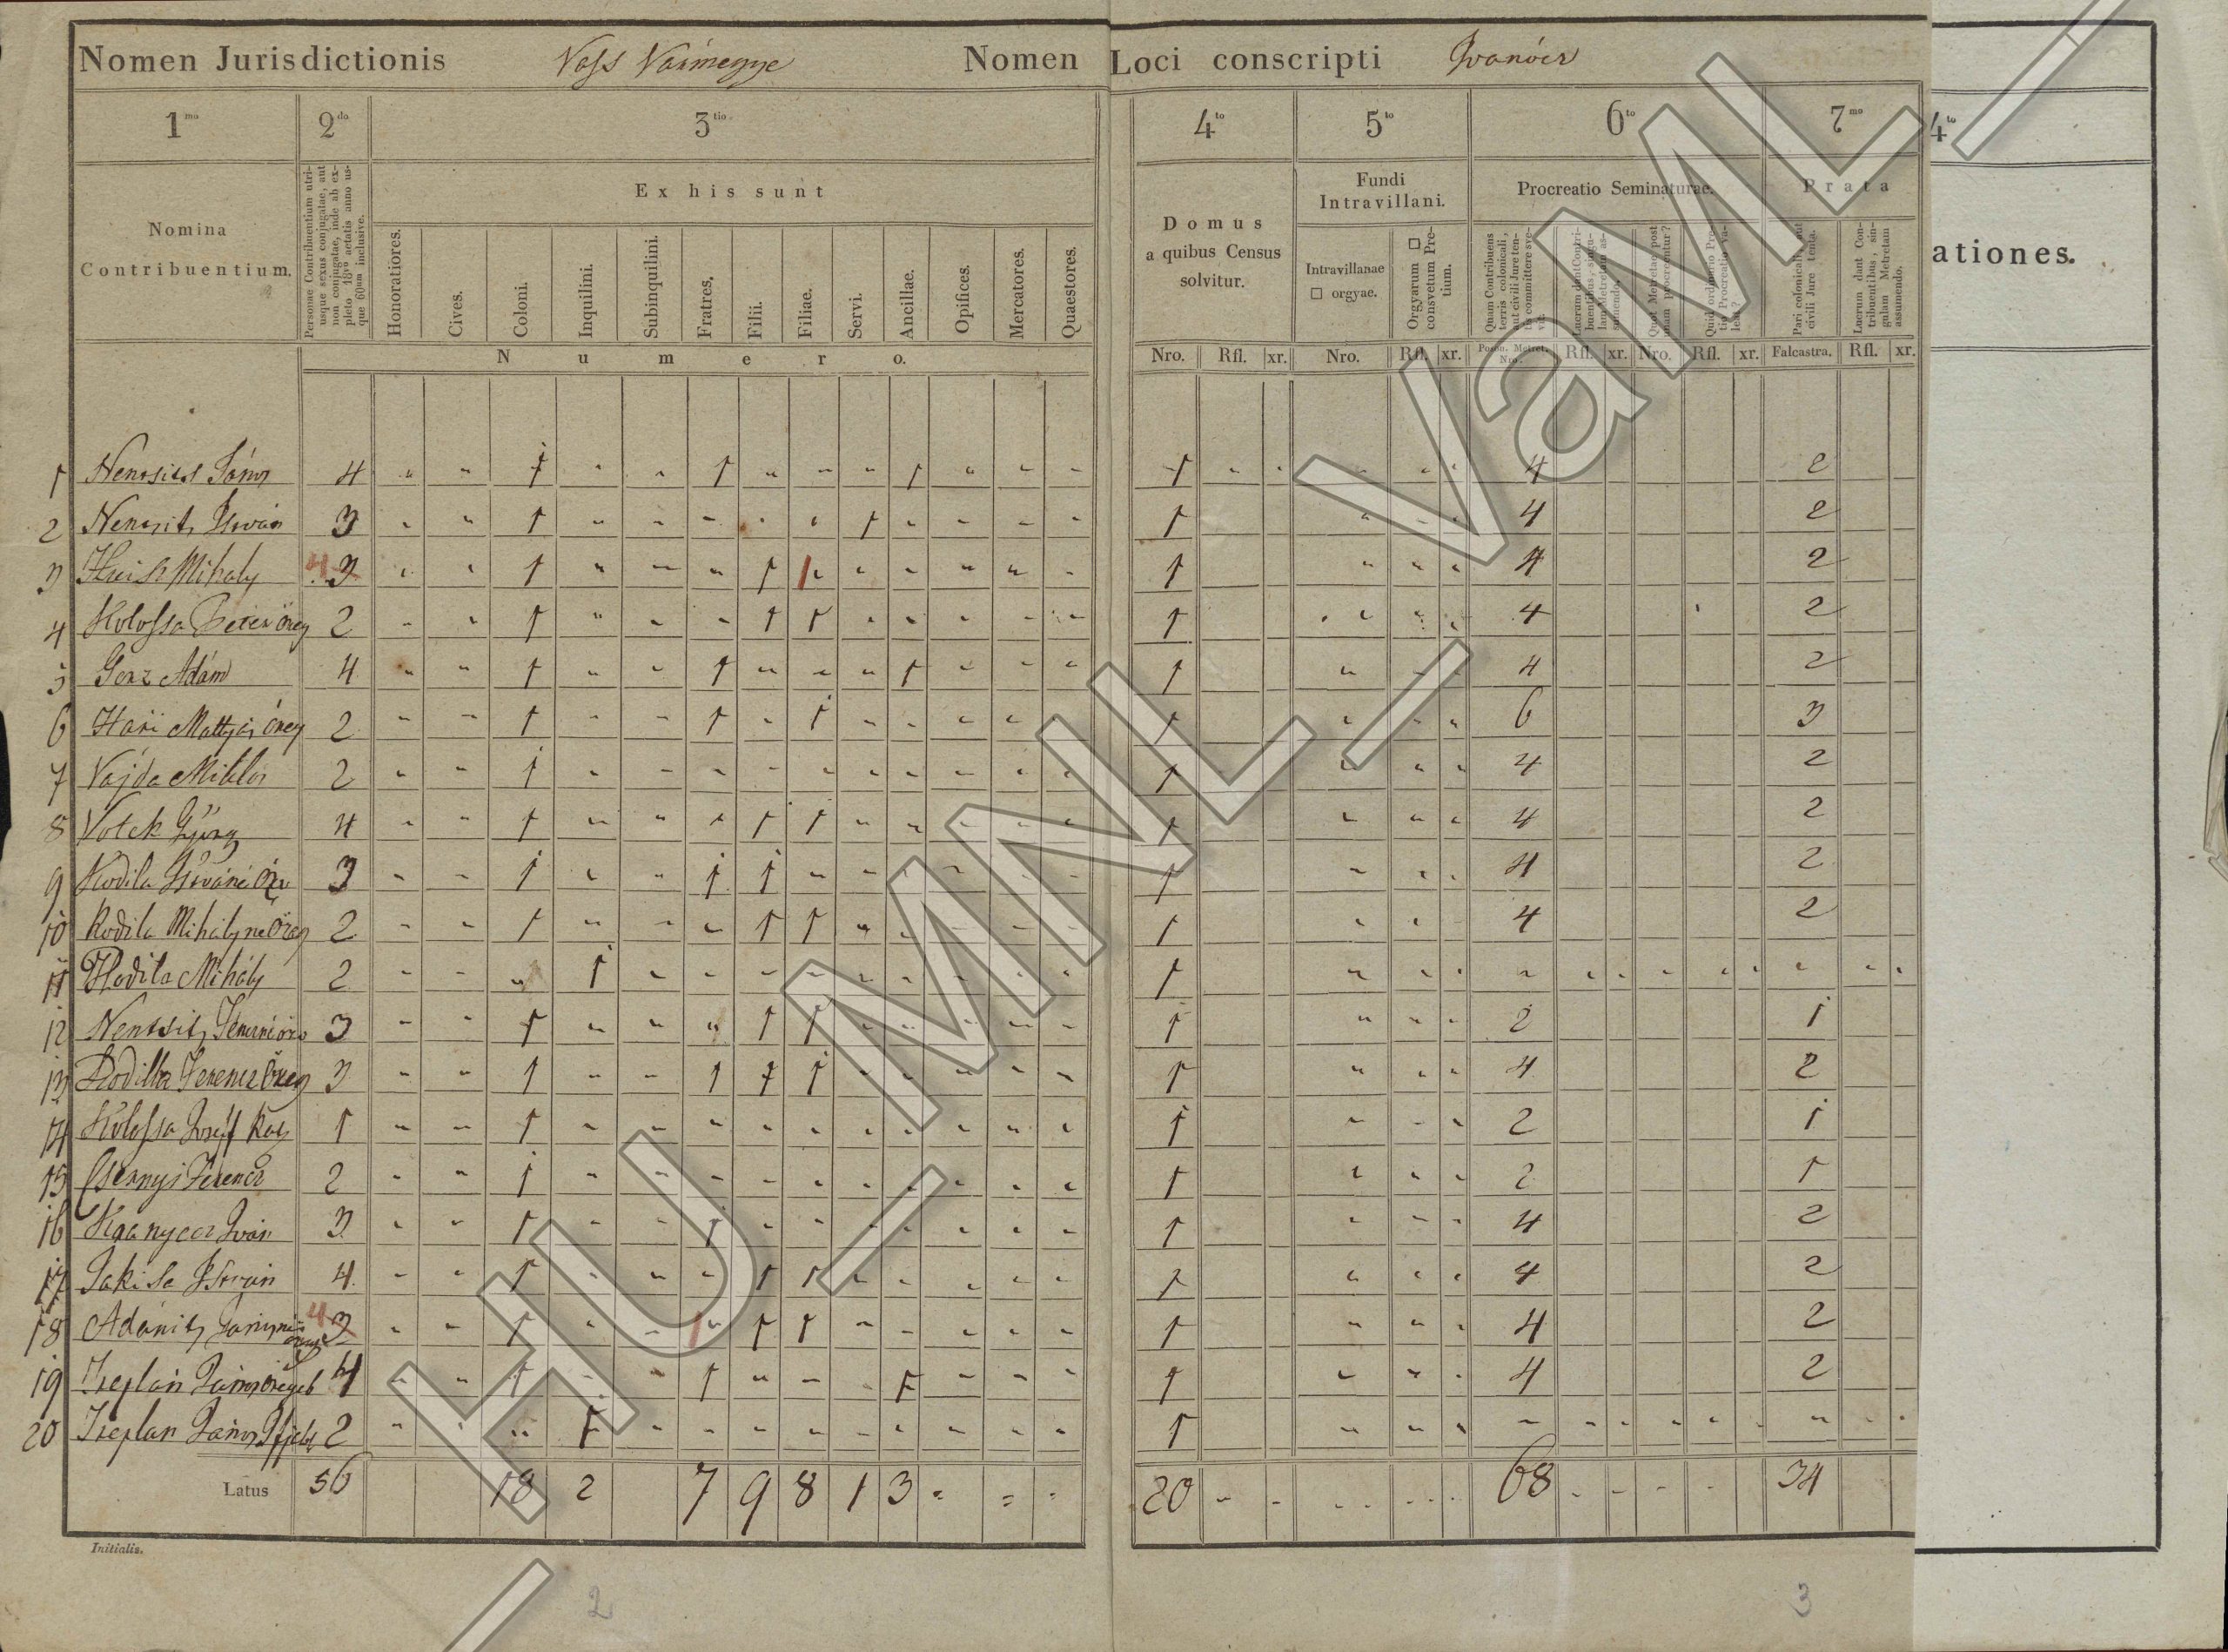 Nomen Jurisdictionis Vass Vármegye Nomen Loci conscripti Ivanócz
1mo 2do 3tio 4to 5to 6to 7mo 4to
Nomina Contribuentium.
Personae Contribuentium utriusque sexus conjugatae, aut non conjugatae, inde ab expleto 18vo aetatis anno usque 60am inclusive.
Ex his sunt
Honoratiores. Cives. Coloni. Inquilini. Subinquilini. Fratres, Filii. Filiae. Servi. Ancillae. Opifices. Mercatores. Quaestores.
Numero.
Domus a quibus Census solvitur.
Fundi Intravillani.
Intravillanae □ orgyae.
Orgyarum □ consvetum Pretium.
Procreatio Seminaturae.
Prata
Lucrum dant Contribuentibus, singulam Metretam assumendo.
ationes.
Nro. Rfl. xr. Nro. Rfl. xr. Rfl. xr. Nro. Rfl. xr. Falcastra. Rfl. xr.
1 Nentsits János 4 " " 1 " " 1 " " " 1 " " " 1 4 2
2 Nentsits István 3 " " 1 " " " " " 1 " " " " 1 4 2
3 Mihaly 4 3 " " 1 " " " 1 1 " " " " " 1 4 2
4 Kolossa Péter öreg 2 " " 1 " " " 1 1 " " " " " 1 4 2
5 Gerz Adám 4 " " 1 " " 1 " " " 1 " " " 1 4 2
6 Hari Mattyás öreg 2 " " 1 " " 1 " 1 " " " " 1 6 3
7 Vajda Miklós 2 " " 1 " " " " " " " " " " 1 4 2
8 Votek György 4 " " 1 " " " 1 1 " " " " " 1 4 2
9 Kodila Istváné Özv 3 " " 1 " " 1 1 " " " " " " 1 4 2
10 Kodila Mihályne Öreg 2 " " 1 " " " 1 1 " " " " " 1 4 2
11 Kodila Mihály 2 " " " 1 " " " " " " " " " 1
12 Nentsits özv 3 " " 1 " " " 1 1 " " " " " 1 2 1
13 Kodilla Ferencz Öreg 3 " " 1 " " 1 1 1 " " " " " 1 4 2
14 Kolossa Joseff 1 " " 1 " " " " " " " " " " 1 2 1
15 Csernyi Ferencz 2 " " 1 " " " " " " " " " " 1 2 1
16 Iván 3 " " 1 " " 1 " " " " " " " 1 4 2
17 Jakisa István 4 " " 1 " " " 1 1 " " " " " 1 4 2
18 Adánits Jánosné 4 3 " " 1 " " 1 1 1 " " " " " 1 4 2
19 János öregeb 4 " " 1 " " 1 " " " 1 " " " 1 4 2
20 János Ifjabb 2 " " " 1 " " " " " " " " " 1
Latus 56 18 2 7 9 8 1 3 20 68 34
Initialis.
2 3
HU_MNL_VaML_